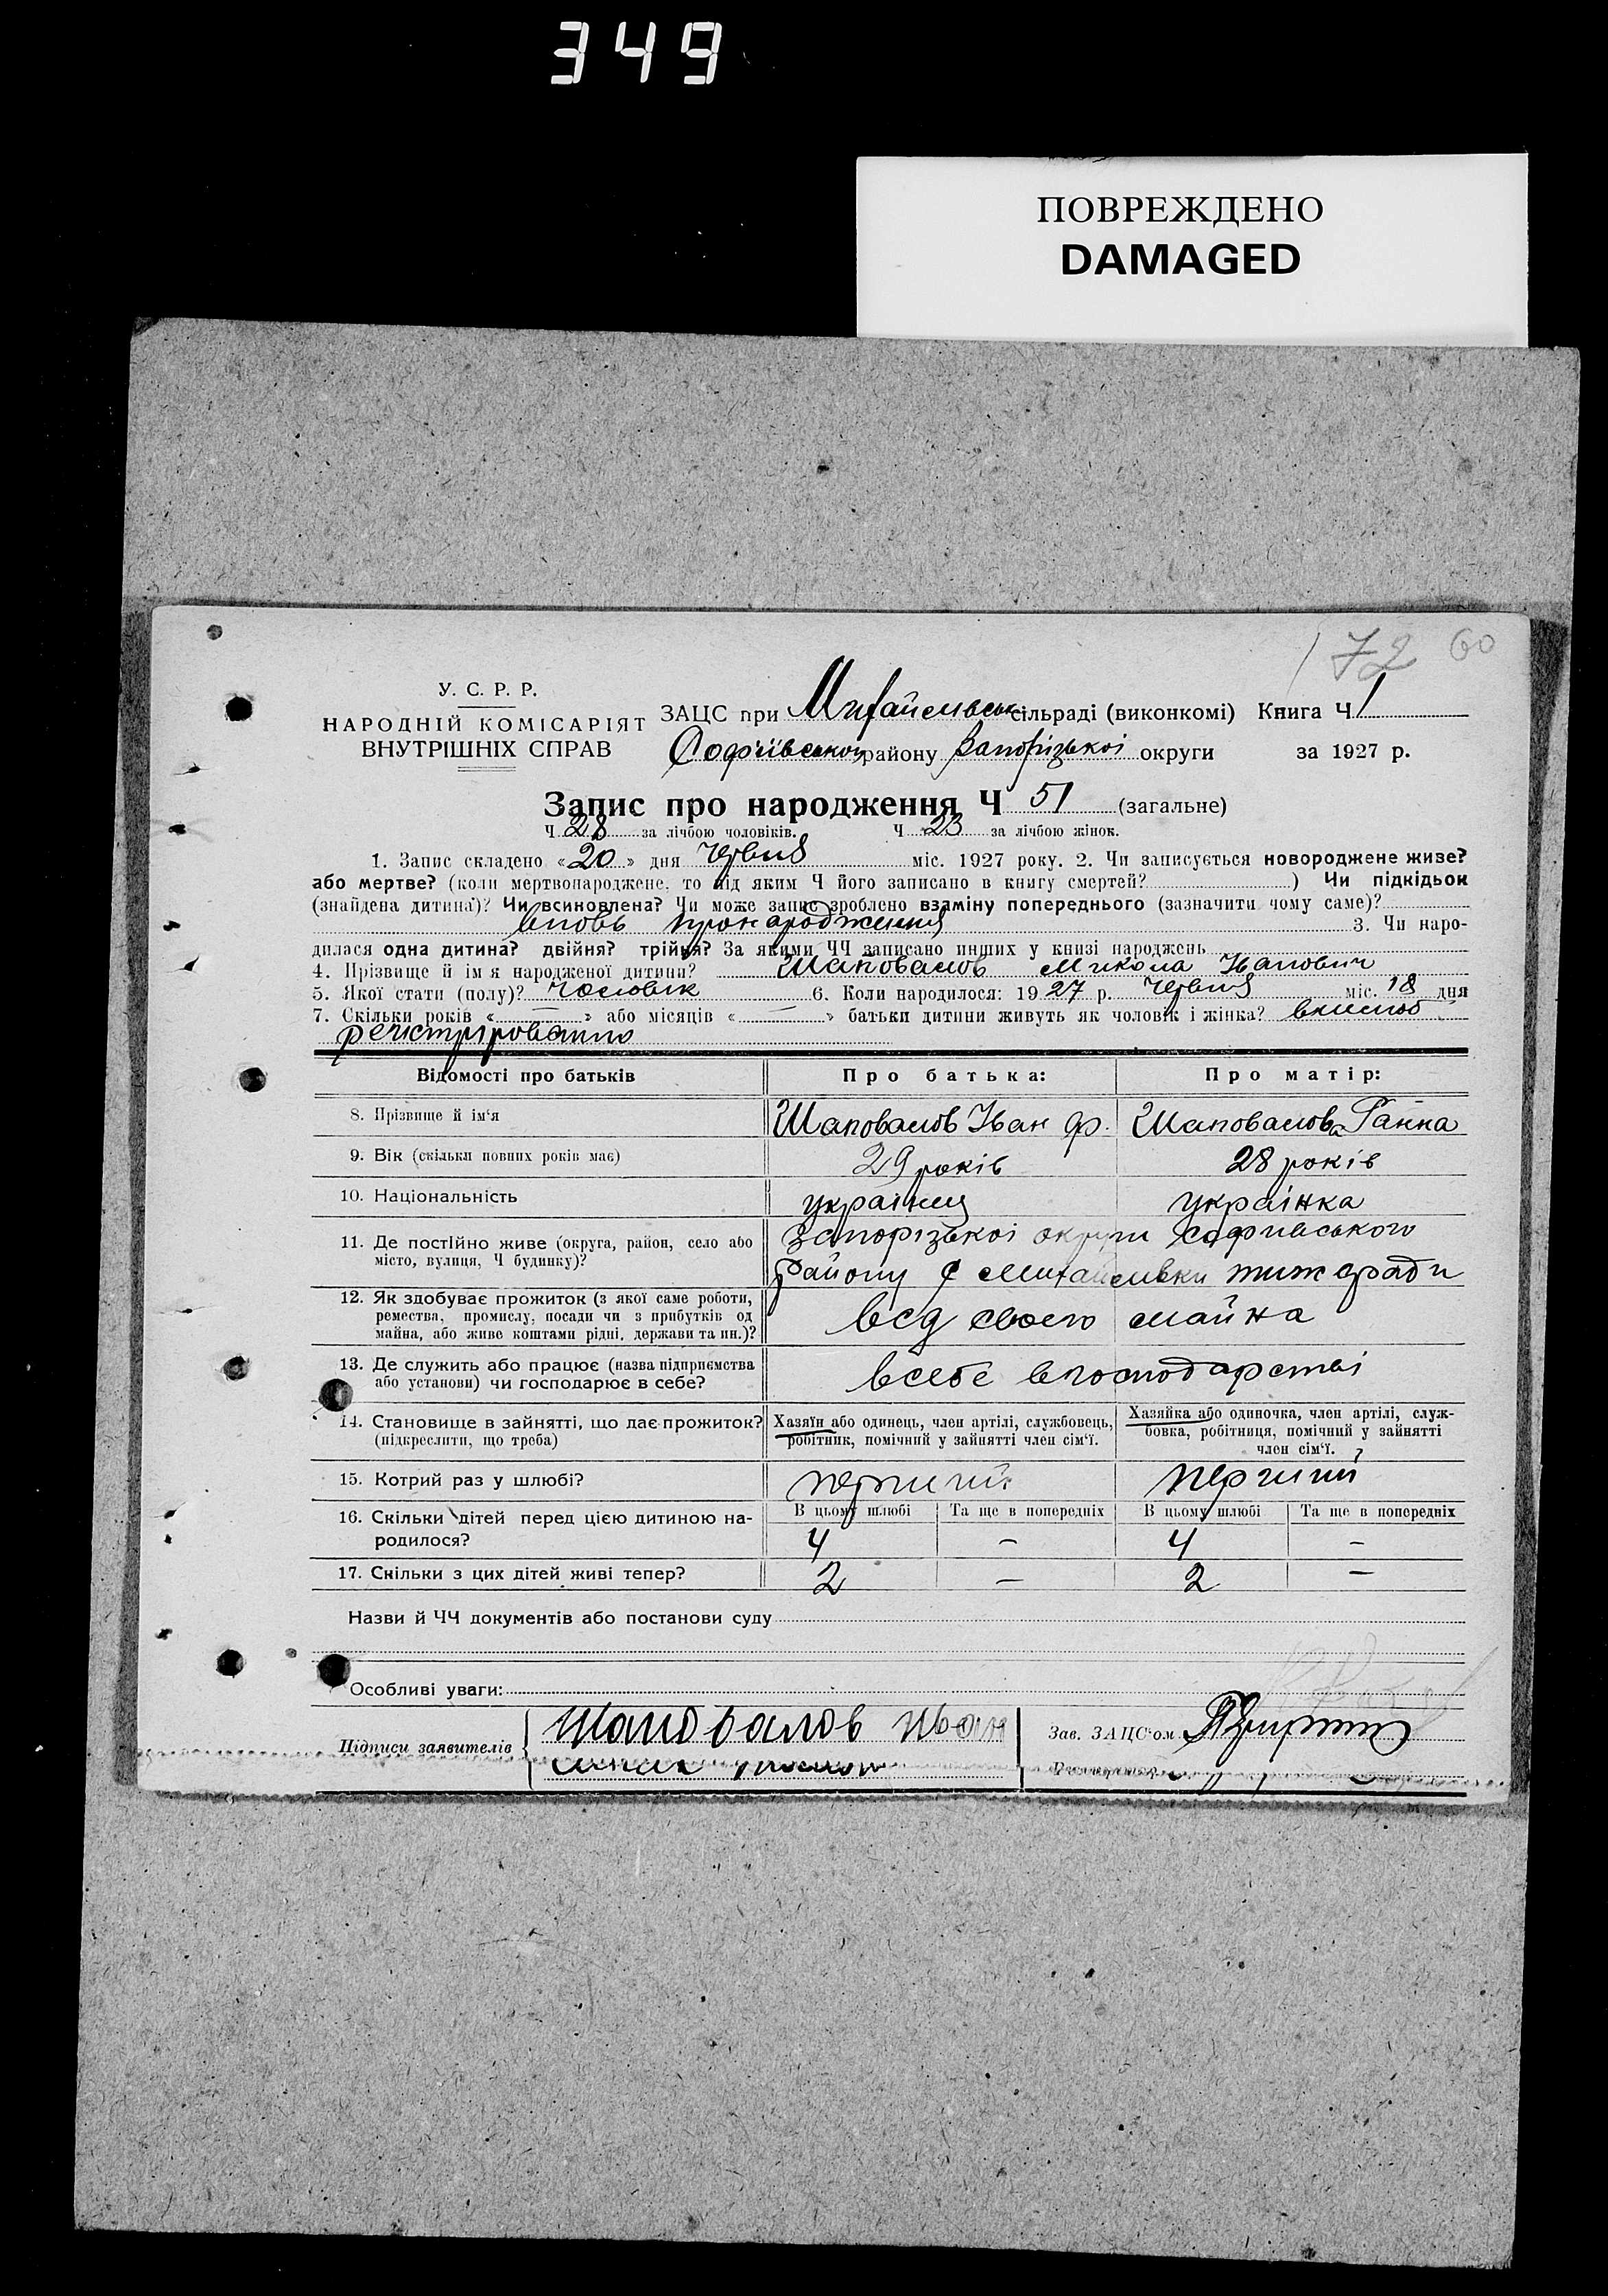 349
ПОВРЕЖДЕНО
DAMAGED
172 60
У. С. Р. Р.
НАРОДНІЙ КОМІСАРІЯТ
ВНУТРІШНІХ СПРАВ
ЗАЦС при Михайлівськ сільраді (виконкомі) Книга Ч 1
Софіївськ району Запорізькоі округи за 1927 р.
Запис про народження Ч 51 (загальне)
Ч 28 за лічбою чоловіків. Ч 23 за лічбою жінок.
1. Запис складено «20» дня Червня міс. 1927 року. 2. Чи записується новороджене живе?
або мертве? (коли мертвонароджене, то під яким Ч його записано в книгу смертей?) Чи підкідьок
(знайдена дитина)? Чи всиновлена? Чи може запис зроблено взаміну попереднього (зазначити чому саме)?
вновь пронародження 3. Чи наро-
дилася одна дитина? двійня? трійня? За якими ЧЧ записано инших у книзі народжень
4. Прізвище й ім я народженої дитини? Шаповалов Микола Іванович
5. Якої стати (полу)? Чоловік 6. Коли народилося: 1927 р. Червня міс. 18 дня
7. Скільки років « — » або місяців « — » батьки дитини живуть як чоловік і жінка?
Відомості про батьків
Про батька:
Про матір:
8. Прізвище й ім'я
Шаповалов Іван Ф.
Шаповалова Ганна
9. Вік (скільки повних років має)
29 років
28 років
10. Національність
украінец
украінка
11. Де постійно живе (округа, район, село або
місто, вулиця, Ч будинку)?
Запорізькоі округи Софиівського
Району с Михайлівки
12. Як здобуває прожиток (з якої саме роботи,
ремества, промислу, посади чи з прибутків од
майна, або живе коштами рідні, держави та ин.)?
від своего майна
13. Де служить або працює (назва підприємства
або установи) чи господарює в себе?
всебе вгосподарстві
14. Становище в зайнятті, що дає прожиток?
(підкреслити, що треба)
Хазяїн або одинець, член артілі, службовець,
робітник, помічний у зайнятті член сім'ї.
Хазяйка або одиночка, член артілі, служ-
бовка, робітниця, помічний у зайнятті
член сім'ї.
15. Котрий раз у шлюбі?
перший
перший
16. Скільки дітей перед цією дитиною на-
родилося?
В цьому шлюбі
Та ще в попередніх
В цьому шлюбі
Та ще в попередніх
4 — 4 —
17. Скільки з цих дітей живі тепер?
2 — 2 —
Назви й ЧЧ документів або постанови суду
Особливі уваги:
Підписи заявителів
Шаповалов Иван
Зав. ЗАЦС'ом